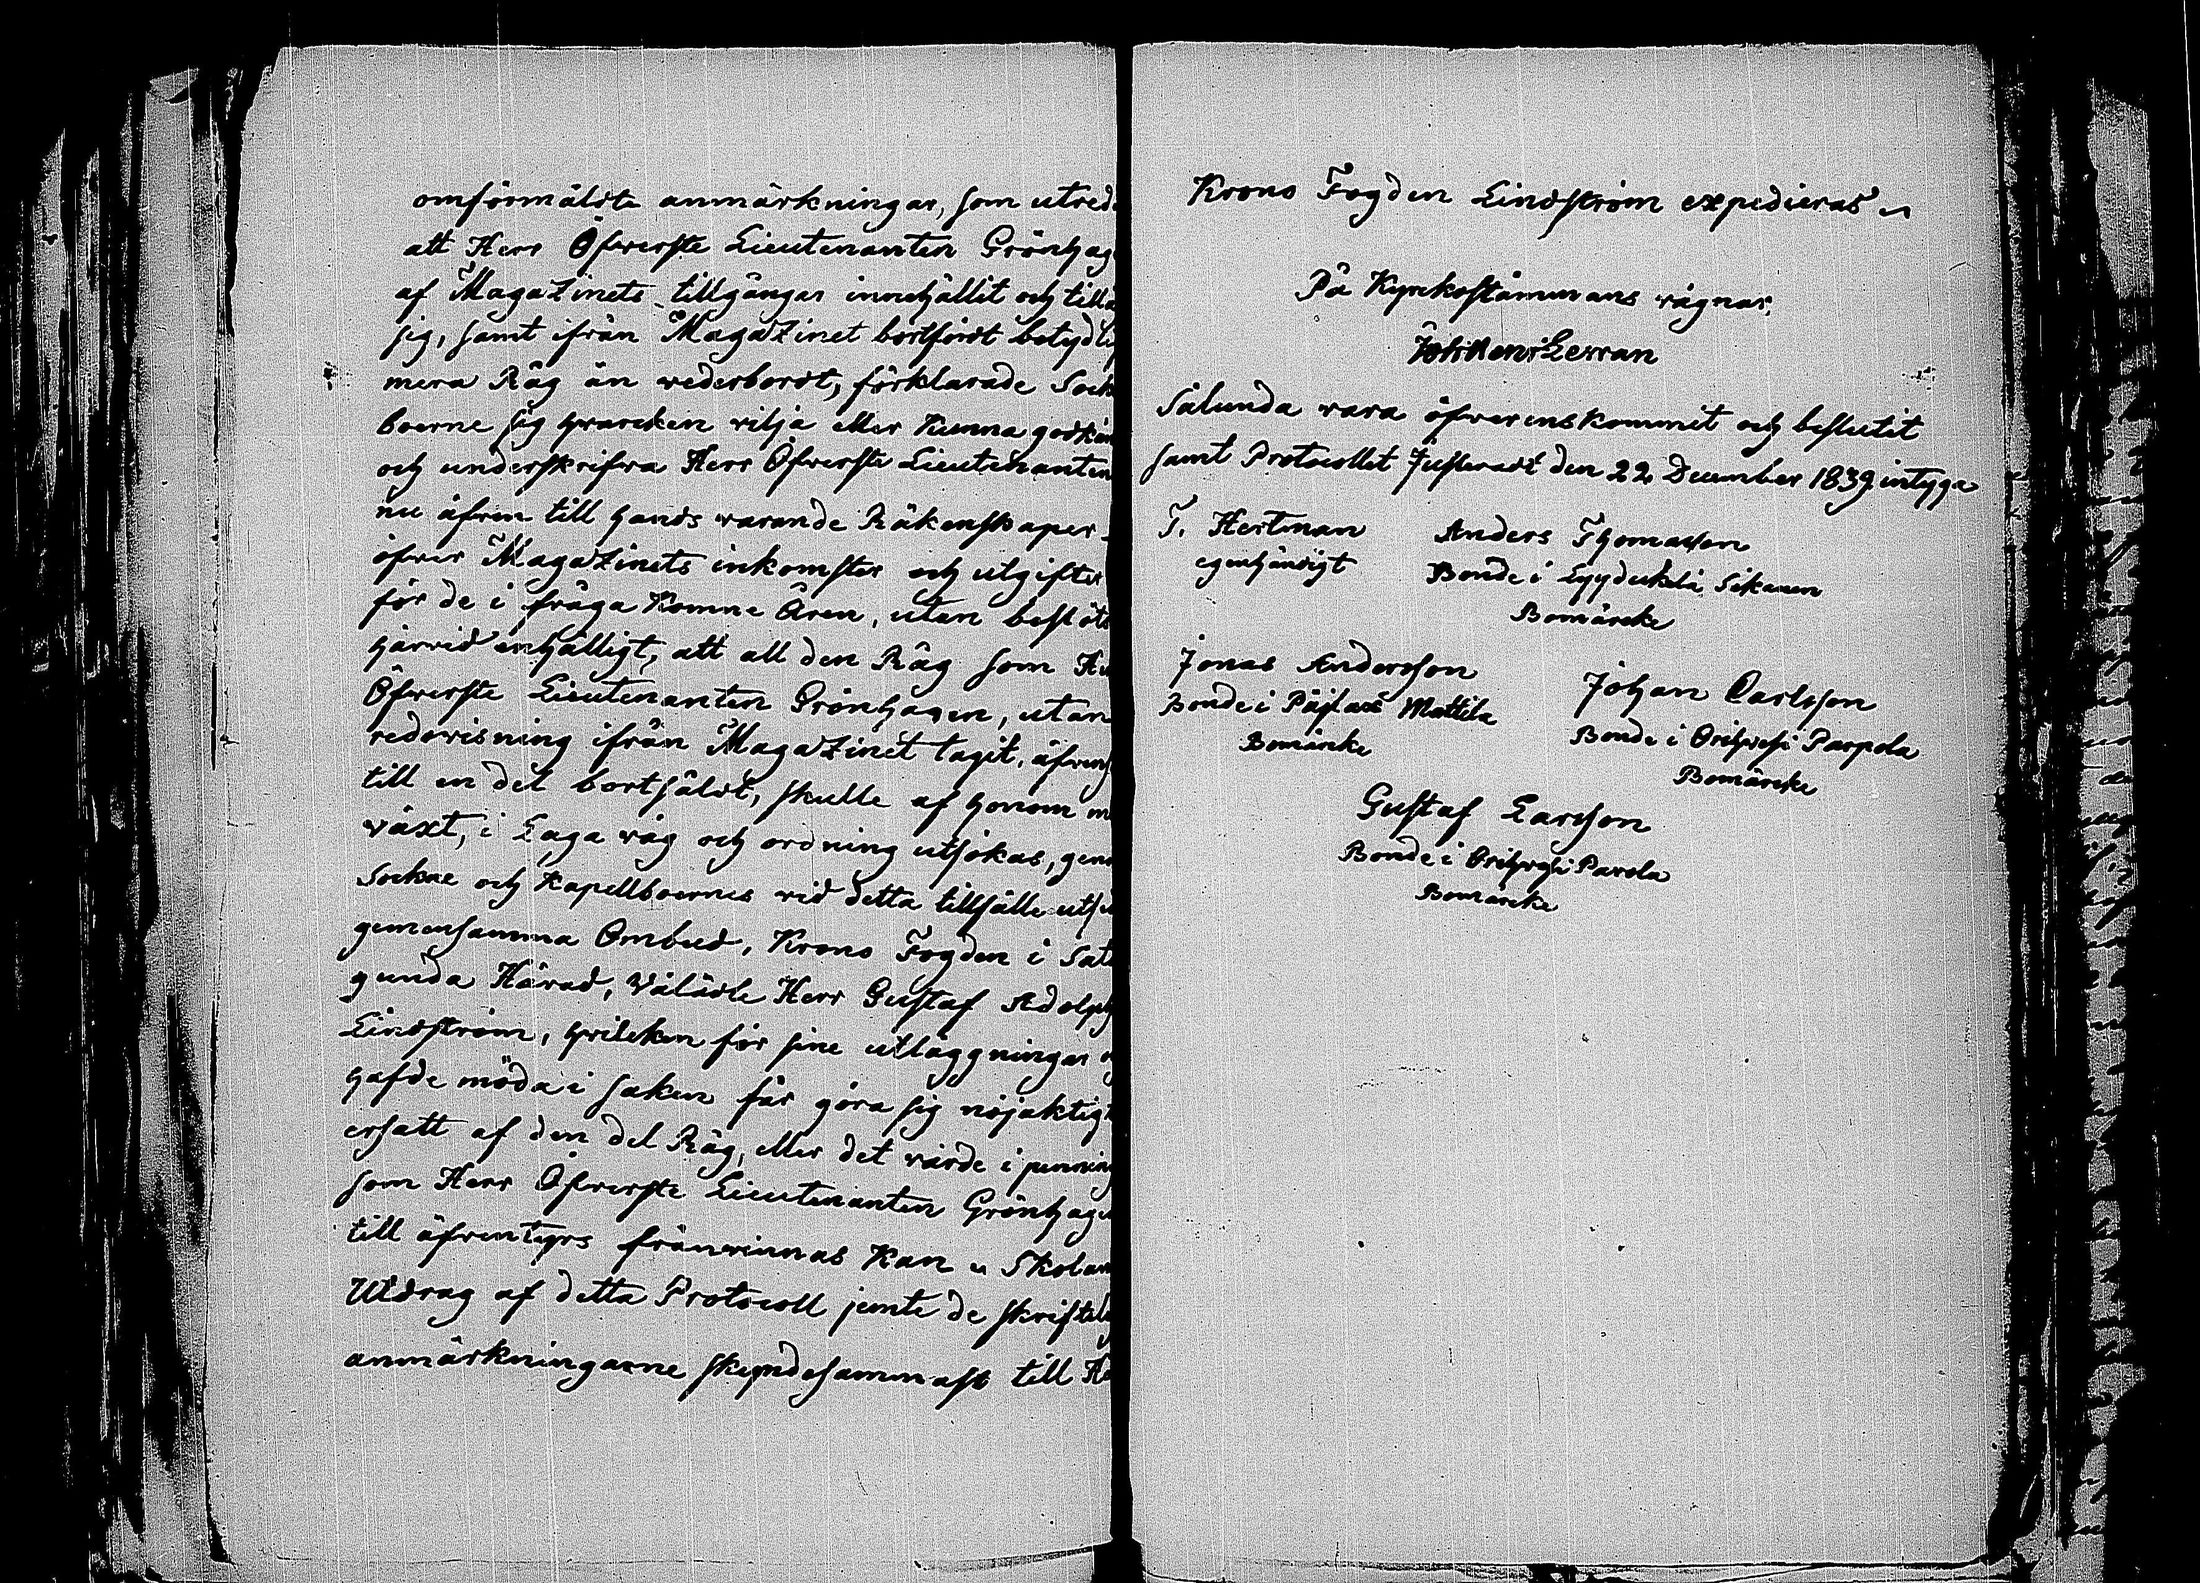 omförmäldte anmärkningar, som utred
att Herr Öfverste Lieutenanten Grönhag
af Magazinets tillgångar innehållit och till
sig, samt ifrån Magazinet bortfördt betydlig
mera Råg än vederbordt, förklarade Sock
boerne sig hvarcken vilja eller kunna godkän
och underskrifva Herr Öfverste Lieutenanten
nu äfven till hands varande Räkenskaper
öfver Magazinets inkomster och utgifter
för de i fråga komne Åren, utan beslöts
härvid enhälligt, att all den Råg som He
Öfverste Lieutenanten Grönhagen, utan
redovisning ifrån Magazinet tagit, äfvens
till en del bortsäldt, skulle af honom m
växt, i Laga väg och ordning utsökas, gen
Sockne och Kapellboernes vid detta tillfälle utse
gemensamma Ombud, Krono Fogden i Sata
gunda Härad, Välädle Herr Gustaf Adolph
Lindström, hvilcken för sine utläggningar o
hafde möda i saken får göra sig nöjaktigt
ersatt af den del Råg, eller det värde i penning
som Herr Öfverste Lieutenanten Grönhagen
till äfventyrs frånvinnas kan Skolan
Utdrag af detta Protocoll jemte de skriftel
anmärkningarne skyndesammast till He
Krono Fogden Lindström expedieras
På Kyrckostämmans vägnar,
Sålunda vara öfverenskommit och beslutit
samt Protocollet Justeradt den 22 December 1839 intyga
T. Hertman Anders Thomasson
egenhändigt Bonde i Sikanen
Bomärcke
Jonas Andersson Johan Carlsson
Bonde i Mattila Bonde i Orihvesi Parpola
Bomärcke Bomärcke
Gustaf Larsson
Bonde i Orihvesi Parola
Bomärcke